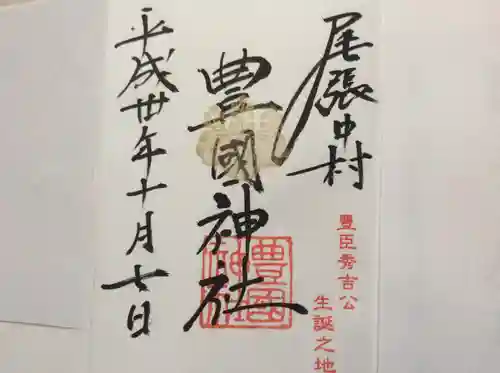 尾張中村
豐臣秀吉公
生誕之地
豊國神社
豊國神社
平成卅年十月七日